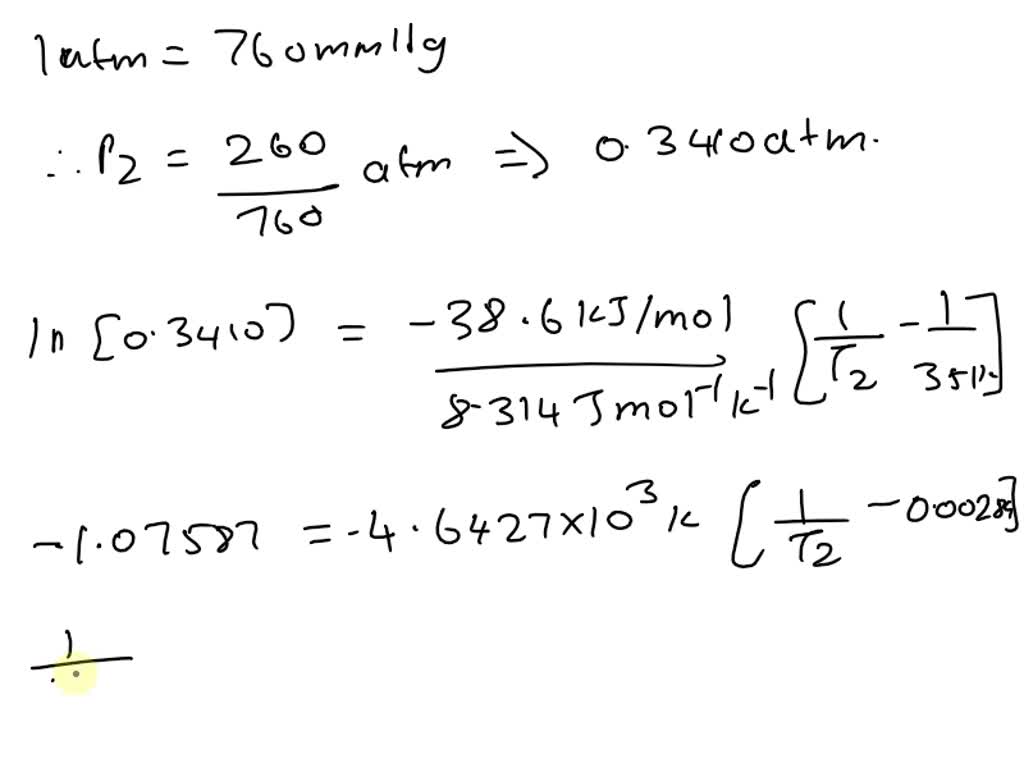 1 atm = 760 mmHg
∴ P2 = 260/760 atm ⇒ 0.3410 atm.
ln [0.3410] = -38.6 kJ/mol / 8.314 J mol⁻¹ K⁻¹ [1/T2 - 1/351K]
-1.07587 = -4.6427×10³ K [1/T2 - 0.00284]
1